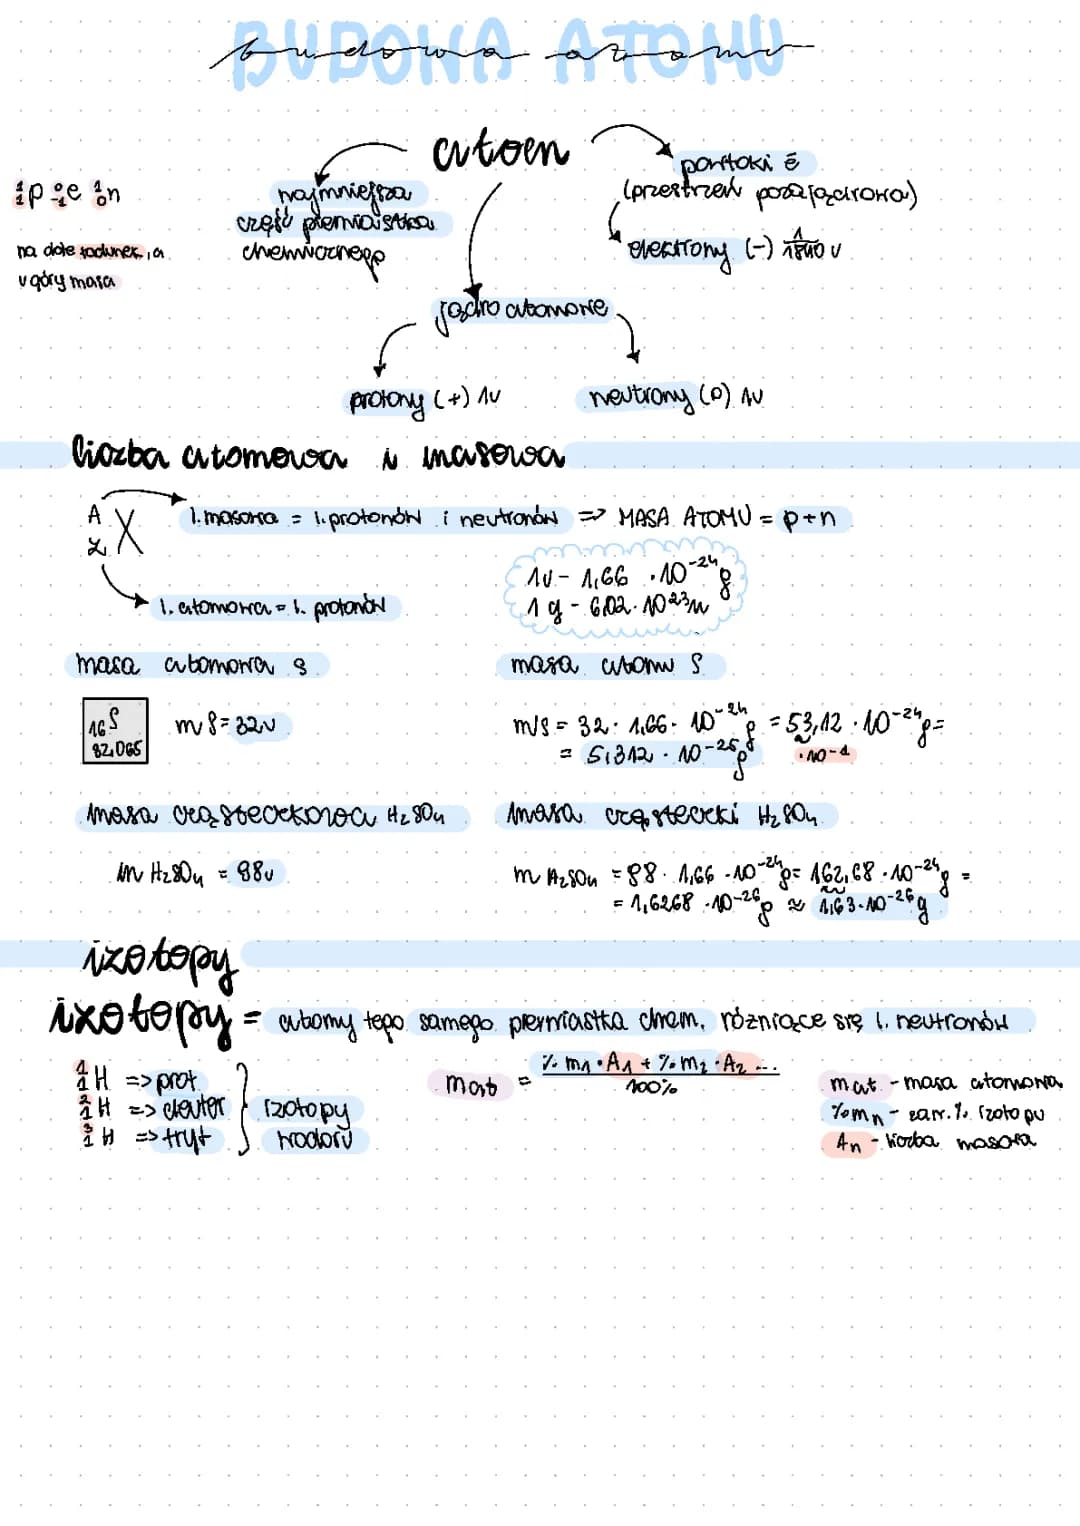 BUDOWA ATOMU
budowa atomu
atom
najmniejsza
część pierwiastka
chemicznego
powłoki ē
(przestrzeń pozajądrowa)
elektrony (-) 1/1840 u
¹₁p ⁰₋₁e ¹₀n
na dole ładunek, a
u góry masa
jądro atomowe
protony (+) 1u
neutrony (0) 1u
liczba atomowa i masowa
A
Z X
l. masowa = l. protonów i neutronów => MASA ATOMU = p+n
l. atomowa = l. protonów
1u - 1,66 · 10⁻²⁴ g
1 g - 6,02 · 10²³ u
masa atomowa S
masa atomu S
16 S
32,065
m S = 32u
m S = 32 · 1,66 · 10⁻²⁴ g = 53,12 · 10⁻²⁴ g =
= 5,312 · 10⁻²⁵ g
· 10⁻¹
masa cząsteczkowa H₂SO₄
masa cząsteczki H₂SO₄
m H₂SO₄ = 98u
m H₂SO₄ = 98 · 1,66 · 10⁻²⁴ g = 162,68 · 10⁻²⁴ g =
= 1,6268 · 10⁻²⁶ g ≈ 1,63 · 10⁻²⁶ g
izotopy
izotopy = atomy tego samego pierwiastka chem. różniące się l. neutronów
¹₁H => prot
²₁H => deuter
³₁H => tryt
izotopy
wodoru
mat = %m₁ · A₁ + %m₂ · A₂ ...
100%
mat. - masa atomowa
%mn - zaw. % izotopu
An - liczba masowa